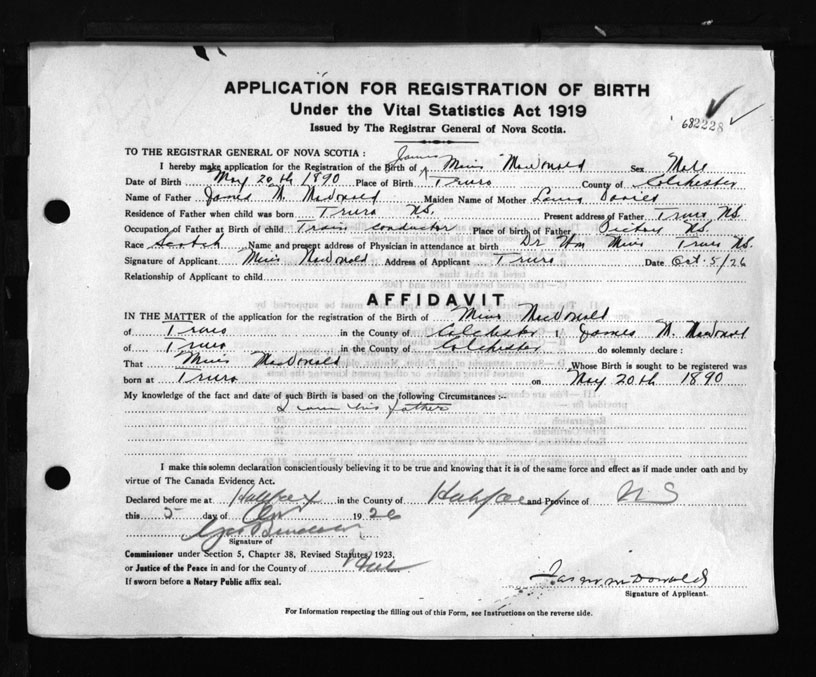 APPLICATION FOR REGISTRATION OF BIRTH
Under the Vital Statistics Act 1919
Issued by The Registrar General of Nova Scotia.
682228
TO THE REGISTRAR GENERAL OF NOVA SCOTIA :
James
I hereby make application for the Registration of the Birth of Muir MacDonald Sex Male
Date of Birth May 20th 1890 Place of Birth Truro County of Colchester
Name of Father James M. MacDonald Maiden Name of Mother Davies
Residence of Father when child was born Truro NS. Present address of Father Truro NS
Occupation of Father at Birth of child Train conductor Place of birth of Father Pictou NS.
Race Scotch Name and present address of Physician in attendance at birth Dr Wm Muir Truro NS.
Signature of Applicant Muir MacDonald Address of Applicant Truro Date Oct. 5/26
Relationship of Applicant to child
AFFIDAVIT
IN THE MATTER of the application for the registration of the Birth of Muir MacDonald
of Truro in the County of Colchester I, James M. MacDonald
of Truro in the County of Colchester do solemnly declare :
That Muir MacDonald Whose Birth is sought to be registered was
born at Truro on May 20th 1890
My knowledge of the fact and date of such Birth is based on the following Circumstances :-
I am his father
I make this solemn declaration conscientiously believing it to be true and knowing that it is of the same force and effect as if made under oath and by
virtue of The Canada Evidence Act.
Declared before me at Halifax in the County of Halifax and Province of NS
this 5 day of Oct 1926
Signature of
Commissioner under Section 5, Chapter 38, Revised Statutes, 1923.
or Justice of the Peace in and for the County of
If sworn before a Notary Public affix seal.
Jas M McDonald
Signature of Applicant.
For Information respecting the filling out of this Form, see Instructions on the reverse side.